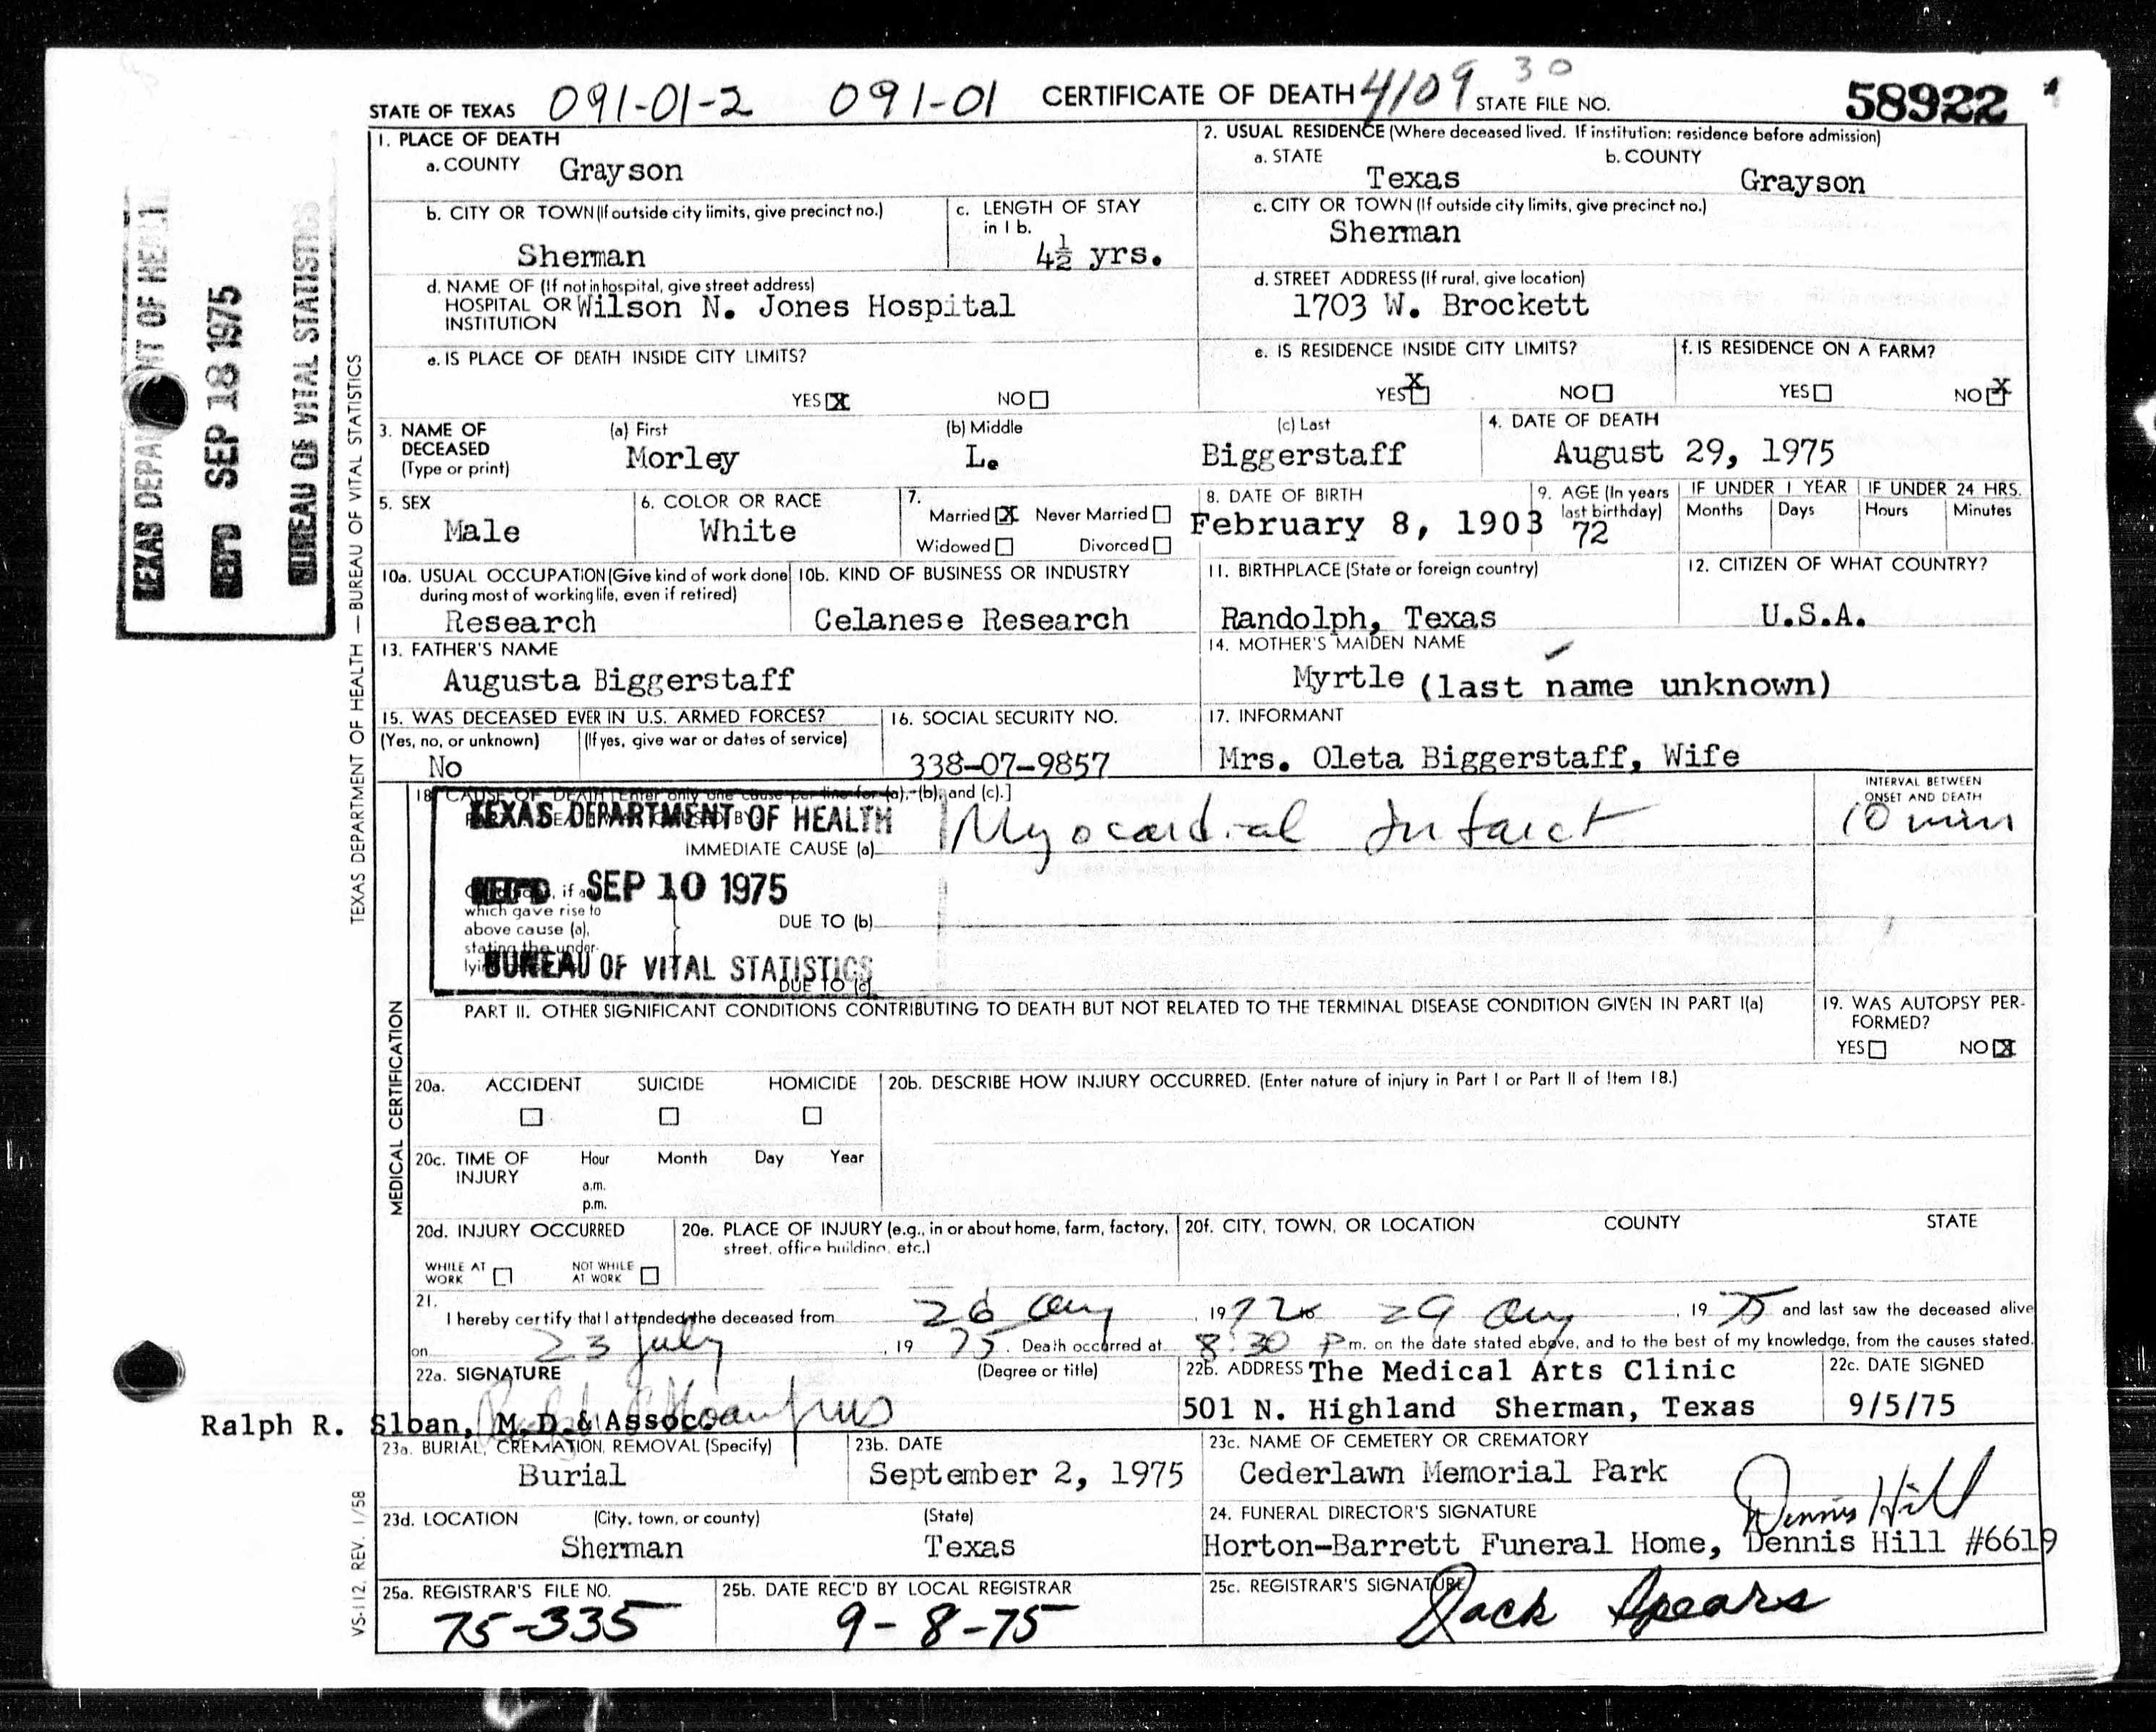 STATE OF TEXAS 091-01-2 091-01 CERTIFICATE OF DEATH 4109 30 STATE FILE NO. 58922
1. PLACE OF DEATH
a. COUNTY Grayson
2. USUAL RESIDENCE (Where deceased lived. If institution: residence before admission)
a. STATE Texas b. COUNTY Grayson
b. CITY OR TOWN (If outside city limits, give precinct no.)
Sherman
c. LENGTH OF STAY
in 1 b.
4½ yrs.
c. CITY OR TOWN (If outside city limits, give precinct no.)
Sherman
d. NAME OF (If not in hospital, give street address)
HOSPITAL OR Wilson N. Jones Hospital
INSTITUTION
d. STREET ADDRESS (If rural, give location)
1703 W. Brockett
e. IS PLACE OF DEATH INSIDE CITY LIMITS?
YES X NO
e. IS RESIDENCE INSIDE CITY LIMITS?
YES X NO
f. IS RESIDENCE ON A FARM?
YES NO X
3. NAME OF
DECEASED
(Type or print)
(a) First
Morley
(b) Middle
L.
(c) Last
Biggerstaff
4. DATE OF DEATH
August 29, 1975
5. SEX
Male
6. COLOR OR RACE
White
7.
Married X Never Married
Widowed Divorced
8. DATE OF BIRTH
February 8, 1903
9. AGE (In years
last birthday)
72
IF UNDER 1 YEAR
Months Days
IF UNDER 24 HRS.
Hours Minutes
10a. USUAL OCCUPATION (Give kind of work done
during most of working life, even if retired)
Research
10b. KIND OF BUSINESS OR INDUSTRY
Celanese Research
11. BIRTHPLACE (State or foreign country)
Randolph, Texas
12. CITIZEN OF WHAT COUNTRY?
U.S.A.
13. FATHER'S NAME
Augusta Biggerstaff
14. MOTHER'S MAIDEN NAME
Myrtle (last name unknown)
15. WAS DECEASED EVER IN U.S. ARMED FORCES?
(Yes, no, or unknown) (If yes, give war or dates of service)
No
16. SOCIAL SECURITY NO.
338-07-9857
17. INFORMANT
Mrs. Oleta Biggerstaff, Wife
MEDICAL CERTIFICATION
18. CAUSE OF DEATH [Enter only one cause per line for (a), (b), and (c).]
TEXAS DEPARTMENT OF HEALTH
IMMEDIATE CAUSE (a) Myocardial Infarct
INTERVAL BETWEEN
ONSET AND DEATH
10 min
REC'D SEP 10 1975
which gave rise to
above cause (a),
stating the under-
DUE TO (b)
BUREAU OF VITAL STATISTICS
DUE TO (c)
PART II. OTHER SIGNIFICANT CONDITIONS CONTRIBUTING TO DEATH BUT NOT RELATED TO THE TERMINAL DISEASE CONDITION GIVEN IN PART I(a)
19. WAS AUTOPSY PER-
FORMED?
YES NO X
20a. ACCIDENT SUICIDE HOMICIDE
20b. DESCRIBE HOW INJURY OCCURRED. (Enter nature of injury in Part I or Part II of Item 18.)
20c. TIME OF
INJURY
Hour Month Day Year
a.m.
p.m.
20d. INJURY OCCURRED
WHILE AT
WORK
NOT WHILE
AT WORK
20e. PLACE OF INJURY (e.g., in or about home, farm, factory,
street, office building, etc.)
20f. CITY, TOWN, OR LOCATION COUNTY STATE
21.
I hereby certify that I attended the deceased from 26 Aug , 1972 to 29 Aug , 19 75 and last saw the deceased alive
on 23 July , 19 75. Death occurred at 8:30 P m. on the date stated above, and to the best of my knowledge, from the causes stated.
22a. SIGNATURE (Degree or title)
Ralph R. Sloan, M.D. & Assoc.
22b. ADDRESS The Medical Arts Clinic
501 N. Highland Sherman, Texas
22c. DATE SIGNED
9/5/75
23a. BURIAL, CREMATION, REMOVAL (Specify)
Burial
23b. DATE
September 2, 1975
23c. NAME OF CEMETERY OR CREMATORY
Cederlawn Memorial Park
23d. LOCATION (City, town, or county) (State)
Sherman Texas
24. FUNERAL DIRECTOR'S SIGNATURE
Dennis Hill
Horton-Barrett Funeral Home, Dennis Hill #6619
25a. REGISTRAR'S FILE NO.
75-335
25b. DATE REC'D BY LOCAL REGISTRAR
9-8-75
25c. REGISTRAR'S SIGNATURE
Jack Spears
TEXAS DEPARTMENT OF HEALTH — BUREAU OF VITAL STATISTICS
VS-112 REV. 1/58
REC'D SEP 18 1975
BUREAU OF VITAL STATISTICS